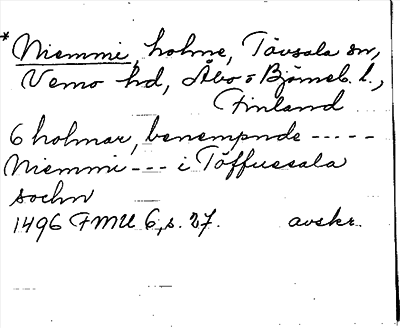 * Niemmi, holme, Tövsala sn,
Vemo hd, Åbo o Björneb. l.,
Finland
6 holmar, benempnde -----
Niemmi --- i Töffuesala
sochn
1496 FMU 6, s. 27. avskr.